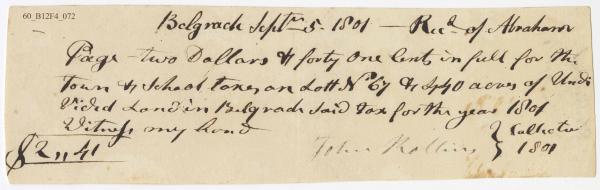 60_B12F4_072
Belgrade Septr 5. 1801 — Recd of Abraham
Page two Dollars & forty one Cents in full for the
Town & School taxes on Lott No 67 & 240 acres of Undi
vided Land in Belgrade said tax for the year 1801
Witness my hand
$2,,41
John Rollins } Collector
1801